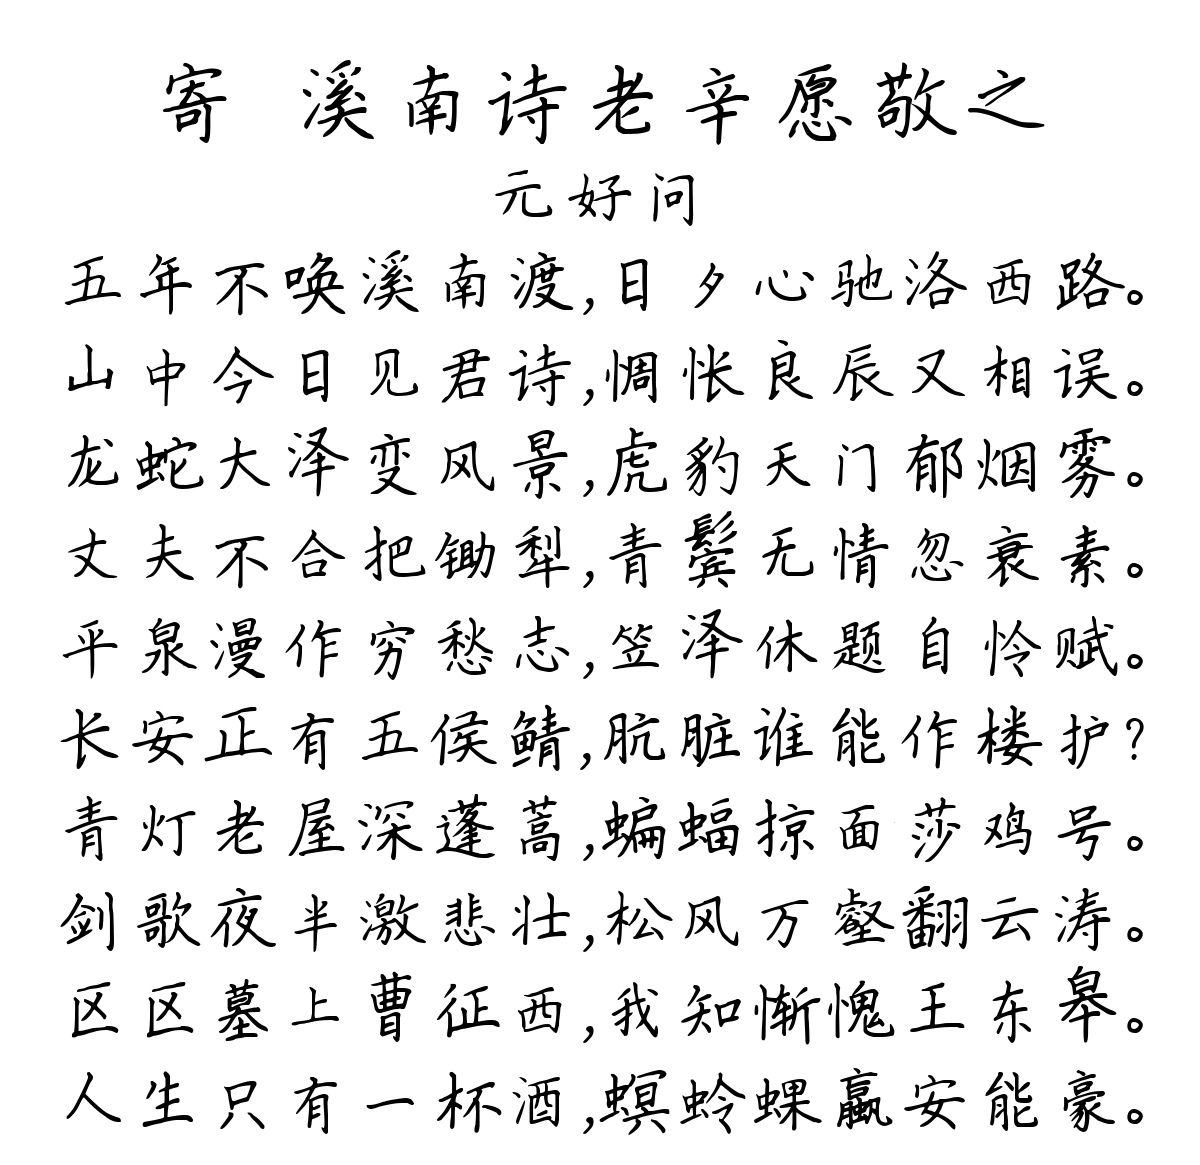 寄 溪南诗老辛愿敬之
元好问
五年不唤溪南渡,日夕心驰洛西路。
山中今日见君诗,惆怅良辰又相误。
龙蛇大泽变风景,虎豹天门郁烟雾。
丈夫不合把锄犁,青鬓无情忽衰素。
平泉漫作穷愁志,笠泽休题自怜赋。
长安正有五侯鲭,肮脏谁能作楼护?
青灯老屋深蓬蒿,蝙蝠掠面莎鸡号。
剑歌夜半激悲壮,松风万壑翻云涛。
区区墓上曹征西,我知惭愧王东皋。
人生只有一杯酒,螟蛉蜾蠃安能豪。